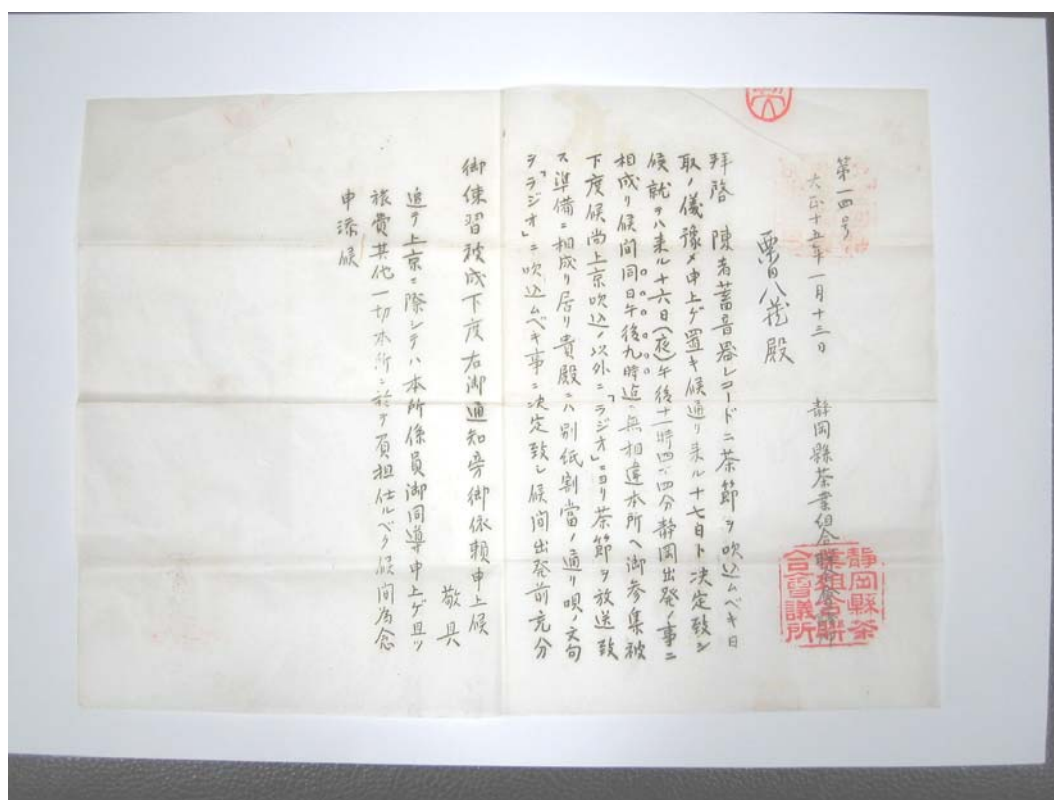 第一四号
大正十五年一月十三日
静岡縣茶業組合聯合會議所
静岡縣茶
業組合聯
合會議所
八茂殿
拝啓 陳者蓄音器レコードニ茶節ヲ吹込ムベキ日
取ノ儀豫メ申上ゲ置キ候通リ来ル十七日ト決定致シ
候就テハ来ル十六日(夜)午後十一時四〇、四分静岡出発ノ事ニ
相成リ候間同日午後九時迄ニ無相違本所ヘ御参集被
下度候尚上京吹込ノ以外ニ「ラジオ」ニヨリ茶節ヲ放送致
ス準備ニ相成リ居リ貴殿ニハ別紙割當ノ通リ唄ノ文句
ヲ「ラジオ」ニ吹込ムベキ事ニ決定致シ候間出発前充分
御練習被成下度右御通知旁御依頼申上候
敬具
追テ上京ニ際シテハ本所係員御同導申上ゲ且ツ
旅費其他一切本所ニ於テ負担仕ルベク候間為念
申添候